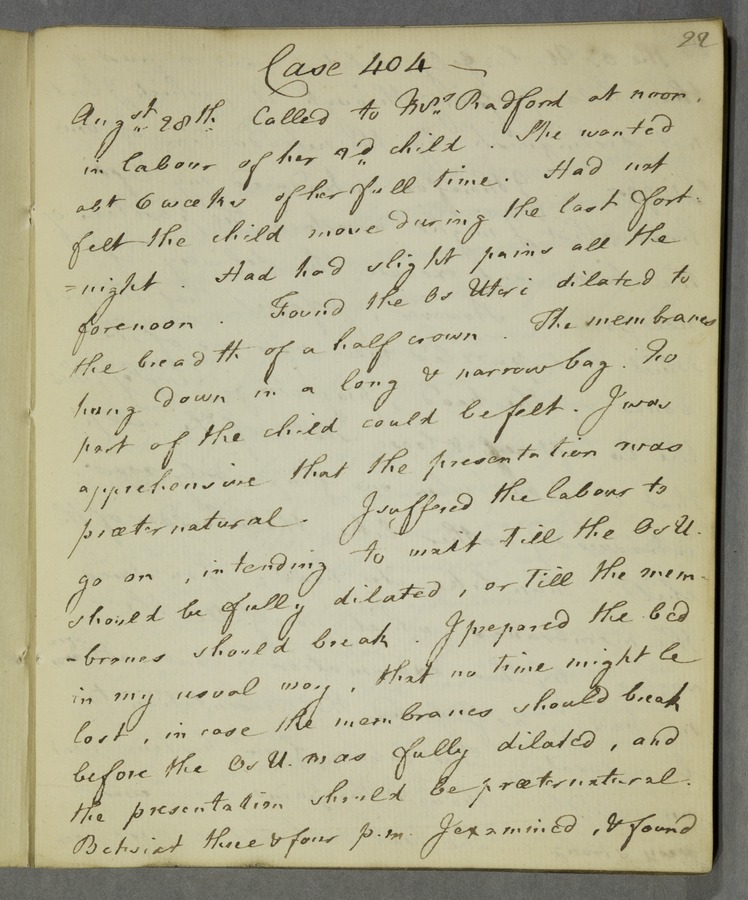 22
Case 404 —
Augst 28th Called to Mrs Radford at noon,
in labour of her 2d child. She wanted
abt 6 weeks of her full time. Had not
felt the child move during the last fort-
=night. Had had slight pains all the
forenoon. Found the Os Uteri dilated to
the breadth of a half crown. The membranes
hung down in a long & narrow bag. No
part of the child could be felt. I was
apprehensive that the presentation was
præternatural. I suffered the labour to
go on, intending to wait till the Os U.
should be fully dilated, or till the mem-
-branes should break. I prepared the bed
in my usual way, that no time might be
lost, in case the membranes should break
before the Os U. was fully dilated, and
the presentation should be præternatural.
Betwixt three & four p.m. I examined, & found